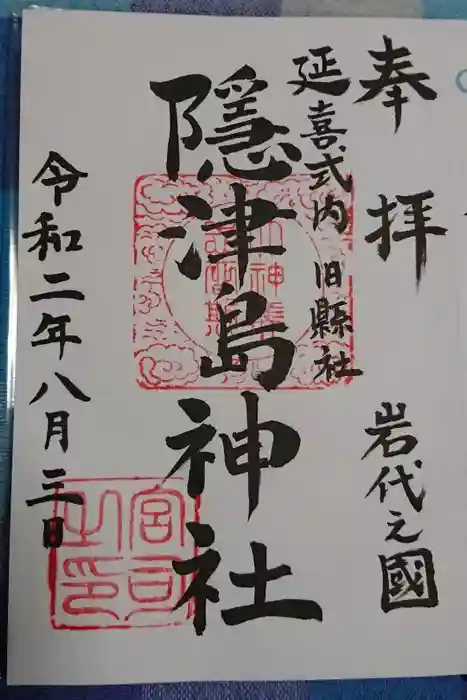 奉拝 岩代之國
延喜式内 旧縣社
隱津島神社
令和二年八月三日
宮司之印